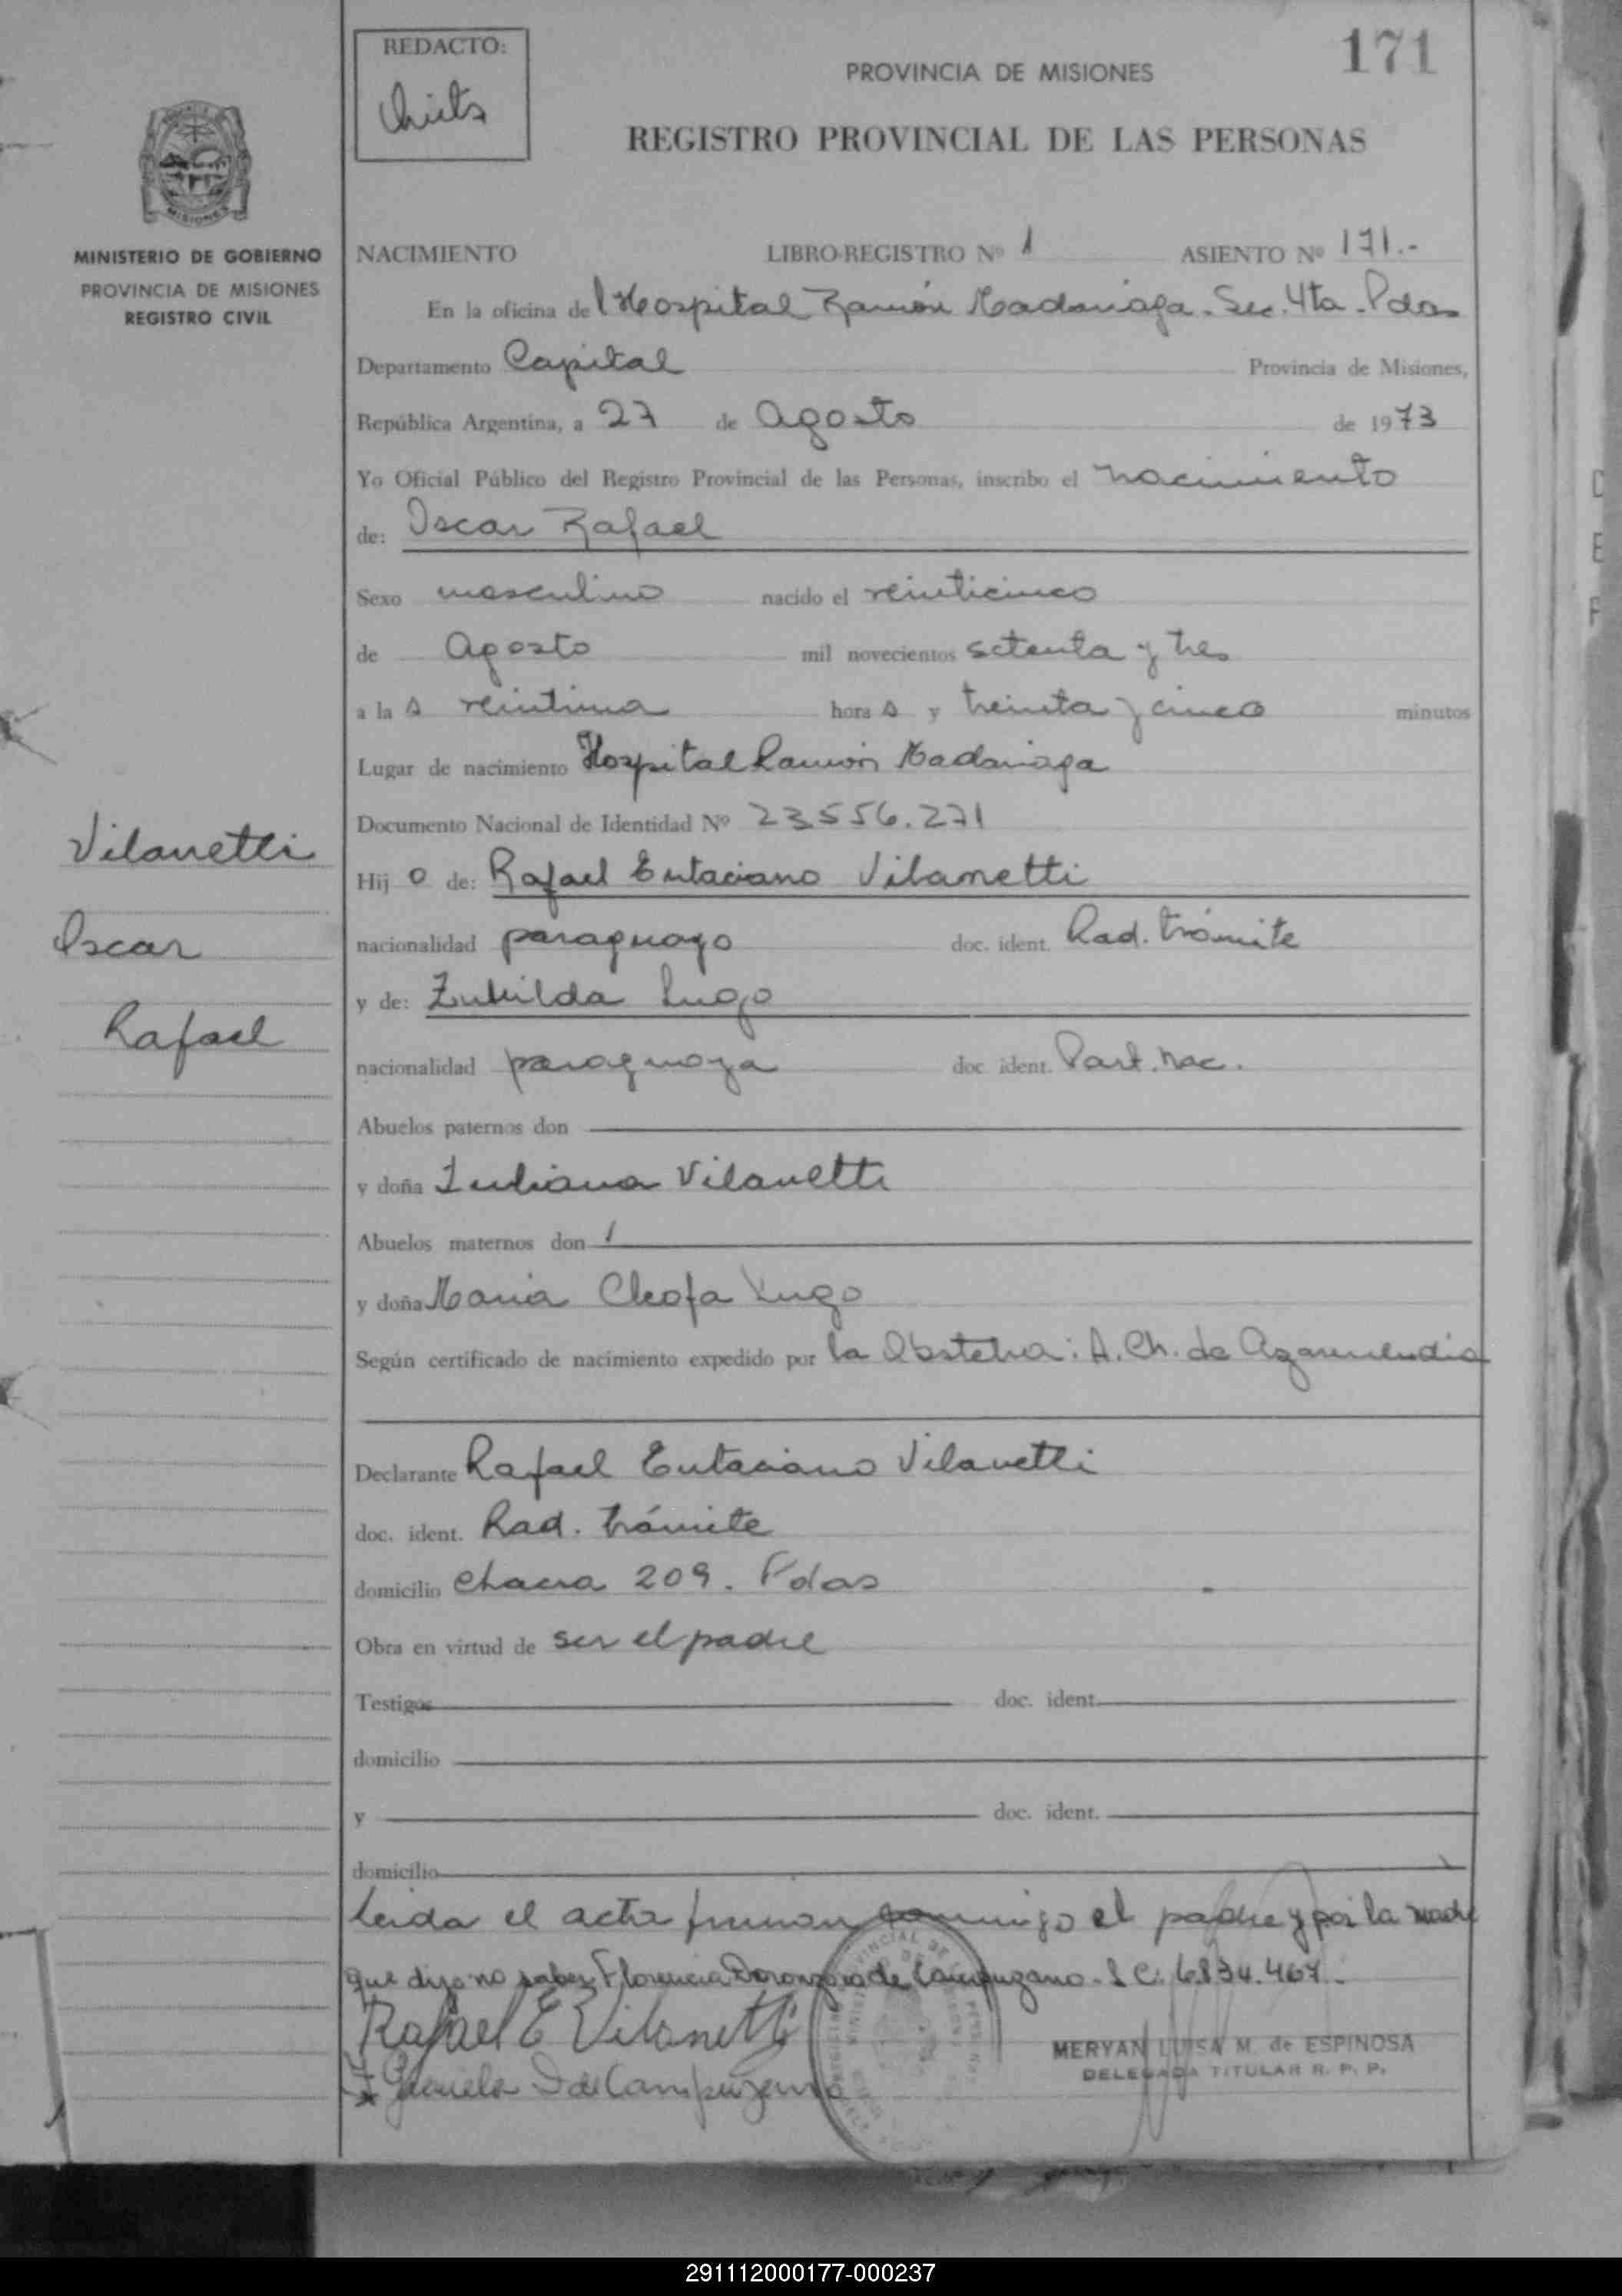 171
REDACTO:
PROVINCIA DE MISIONES
REGISTRO PROVINCIAL DE LAS PERSONAS
MISIONES
MINISTERIO DE GOBIERNO
PROVINCIA DE MISIONES
REGISTRO CIVIL
NACIMIENTO LIBRO-REGISTRO Nº 1 ASIENTO Nº 171.-
En la oficina del Hospital Ramón Madariaga. Sec. 4ta. Pdas
Departamento Capital Provincia de Misiones,
República Argentina, a 27 de Agosto de 1973
Yo Oficial Público del Registro Provincial de las Personas, inscribo el nacimiento
de: Oscar Rafael
Sexo masculino nacido el veinticinco
de Agosto mil novecientos setenta y tres
a las veintiuna horas y treinta y cinco minutos
Lugar de nacimiento Hospital Ramón Madariaga
Documento Nacional de Identidad Nº 23556.271
Hijo de: Rafael Eutaciano Vilanetti
nacionalidad paraguayo doc. ident. Rad. trámite
y de: Zunilda Lugo
nacionalidad paraguaya doc. ident. Part. nac.
Abuelos paternos don
y doña Juliana Vilanetti
Abuelos maternos don
y doña Maria Cleofa Lugo
Según certificado de nacimiento expedido por la Obstetra: A. Ch. de Azarmendia
Declarante Rafael Eutaciano Vilanetti
doc. ident. Rad. trámite
domicilio chacra 209. Pdas
Obra en virtud de ser el padre
Testigos doc. ident.
domicilio
y doc. ident.
domicilio
Leida el acta firman conmigo el padre y por la madre
que dijo no saber Florencia de Campuzano. L C. 6834.467.-
Rafael E Vilanetti
D de Campuzano
MERYAN LUISA M. de ESPINOSA
DELEGADA TITULAR R. P. P.
Vilanetti
Oscar
Rafael
291112000177-000237